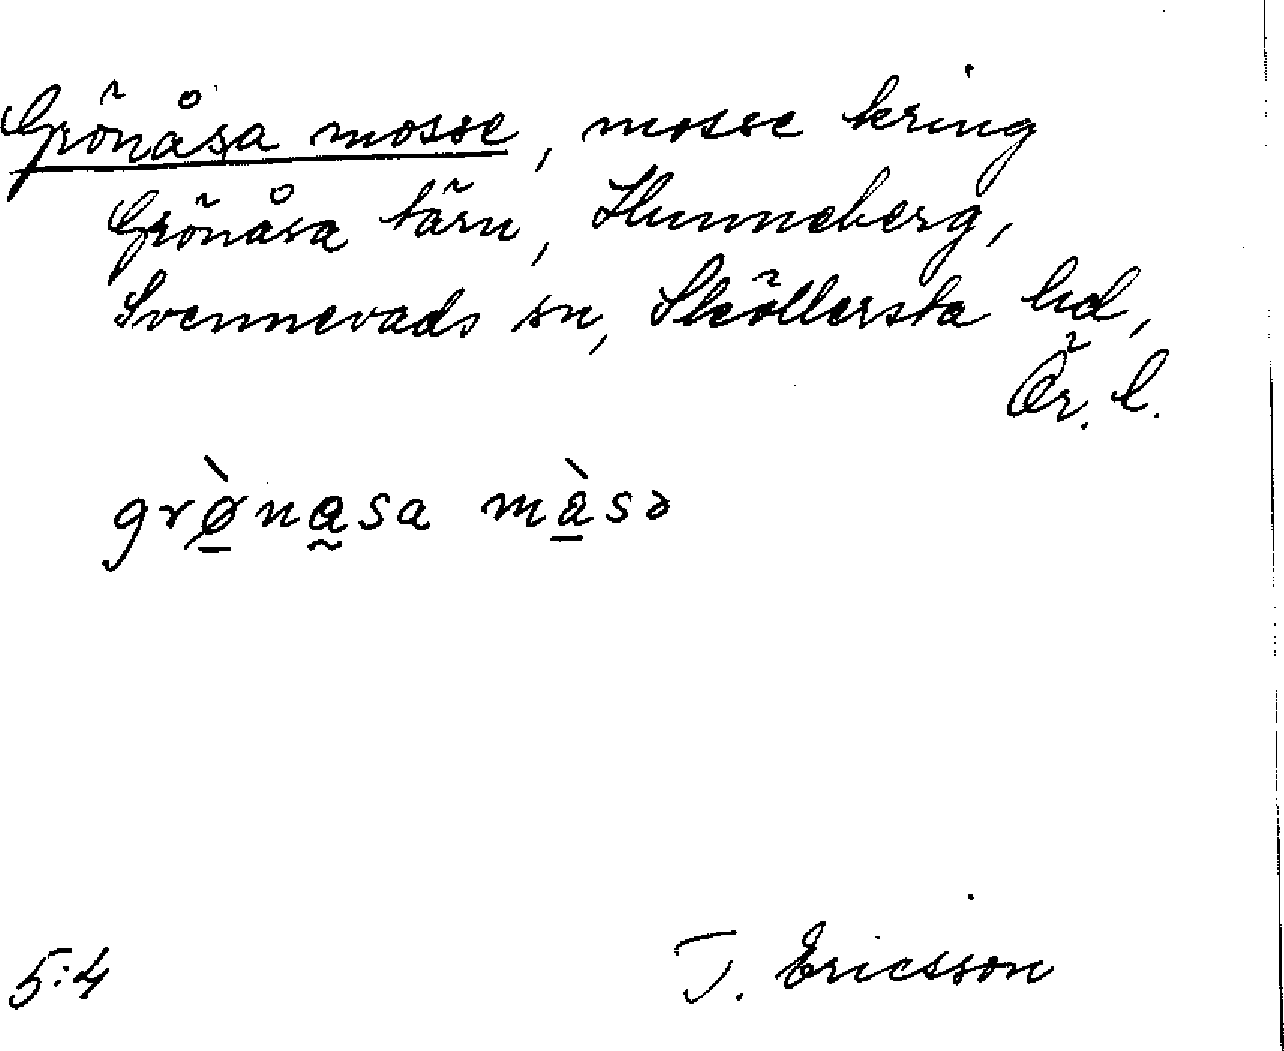 Grönåsa mosse, mosse kring
Grönåsa tärn, Hunneberg,
Svennevads sn, Sköllersta hd,
Ör. l.
grø̠̀na̰sa mà̠sə
5:4
T. Ericsson